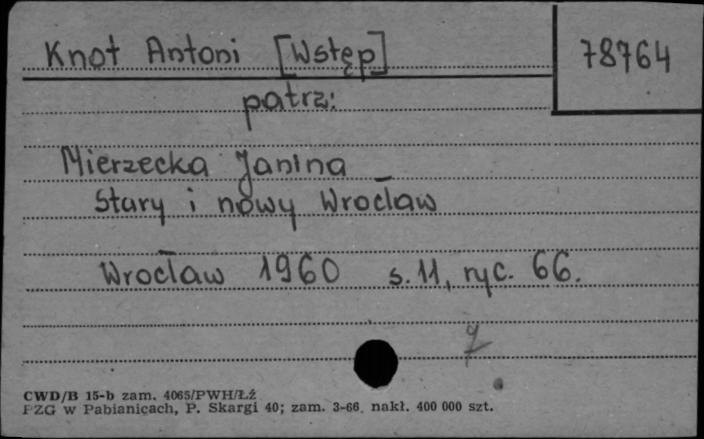 Knot Antoni [Wstęp]
78764
patrz:
Mierzecka Janina
Stary i nowy Wrocław
Wrocław 1960 s. 11, ryc. 66.
CWD/B 15-b zam. 4065/PWH/Łź
PZG w Pabianicach, P. Skargi 40; zam. 3-66. nakł. 400 000 szt.